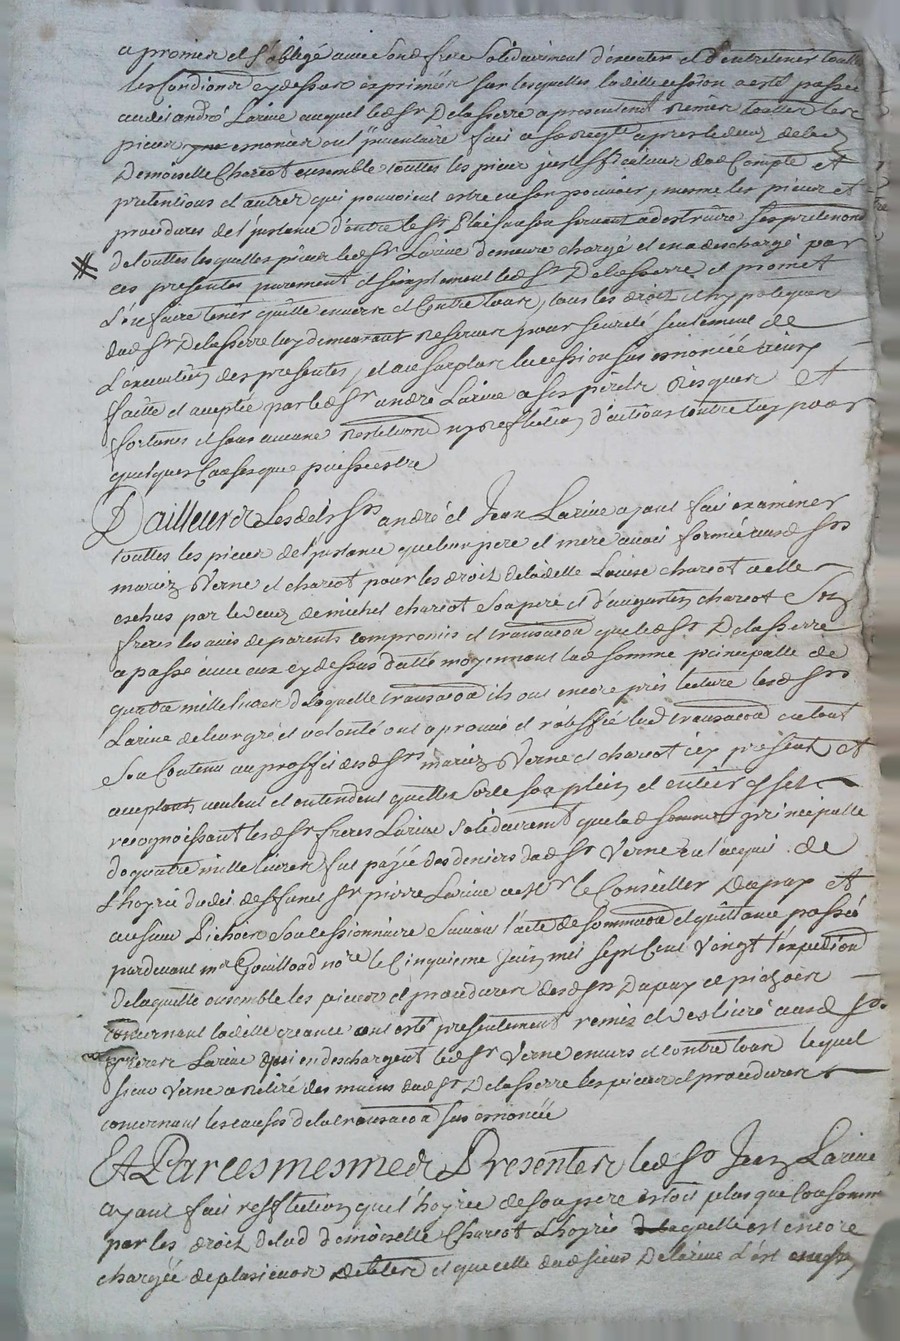 a promis et s'obligé avec sond frere solidairement d'executer et d'entretenir toutes
les Conditions cy dessus exprimées sur lesquelles laditte cession a esté passée
audit andré Larive auquel led Sr Delasserre a presentement remis touttes les
pieces enoncées en l'inventaire fait a sa req.te apres le deces de lad
Demoiselle Chariot ensemble touttes les pieces justifficatives dud Compte et
pretentions et autres qui pouvoient estre en son pouvoir, meme les pieces et
procedures de l'instance d'entre le Sr servant a destruire ses pretentions
# de touttes lesquelles pieces led Sr Larive demeure chargé et en a deschargé par
ces presentes purement et simplement led Sr Delasserre et promet
l'en faire tenir quitte envers et Contre tous, tous les droits et hypoteques
dud Sr Delasserre luy demeurant reservés pour seureté seulement de
l'execution des presentes, et au surplus la cession sus enoncée
faitte et aceptée par led Sr andré Larive a ses perils risques et
fortunes et sans aucune restitution d'actions contre luy pour
quelques Causes que puisse estre
D'ailleurs Lesdits Srs andré et Jean Larive ayant fait examiner
touttes les pieces de l'instance que leur pere et mere avoit formée aud Srs
mariez Verne et chariot pour les droits de ladette Louise chariot a elle
eschus par le deces de michel chariot son pere et d'augustin chariot son
frere les avis de parents compromis et transaction que led Sr Delasserre
a passé avec eux cy dessus datté moyennant lad somme principalle de
quatre mille livres de laquelle transaction ils ont encore pris lecture lesd Srs
Larive de leur gré et volonté ont aprouvé et ratiffié lad transaction en tout
son Contenu au proffit desd Srs mariez Verne et chariot icy present et
aceptants veulent et entendent quelle sorte son plein et entier effet
recognoissant lesd Srs freres Larive solidairement que lad somme principalle
de quatre mille livres fut payée des deniers dud Sr Verne en l'acquit de
l'hoyrie dudit deffunct Sr pierre Larive a Mr le Conseiller Dupuy et
au sieur Pichoer son Cessionnaire suivant l'acte de sommation et quittance passée
pardevant me Gouilloud no.re le Cinquieme juin mil sept Cent Vingt l'expedition
delaquelle ensemble les pieces et procedures desd Srs Dupuy et pichoer
concernant ladette creance ont esté presentement remis et delivré aud Srs
freres Larive qui en deschargent led Sr Verne envers et contre tous lequel
sieur Verne a retiré des mains dud Sr Delasserre les pieces et procedures
concernant les causes de la transaction sus enoncée
Et Par ces mesmes Presentes led Sr Jean Larive
ayant fait refflection que l'hoyrie de son pere estoit plus que Consommée
par les droits de lad Demoiselle Chariot l'hoyrie de laquelle est encore
chargée de plusieurs dettes et que celle du sieur Delarive l'est aussy